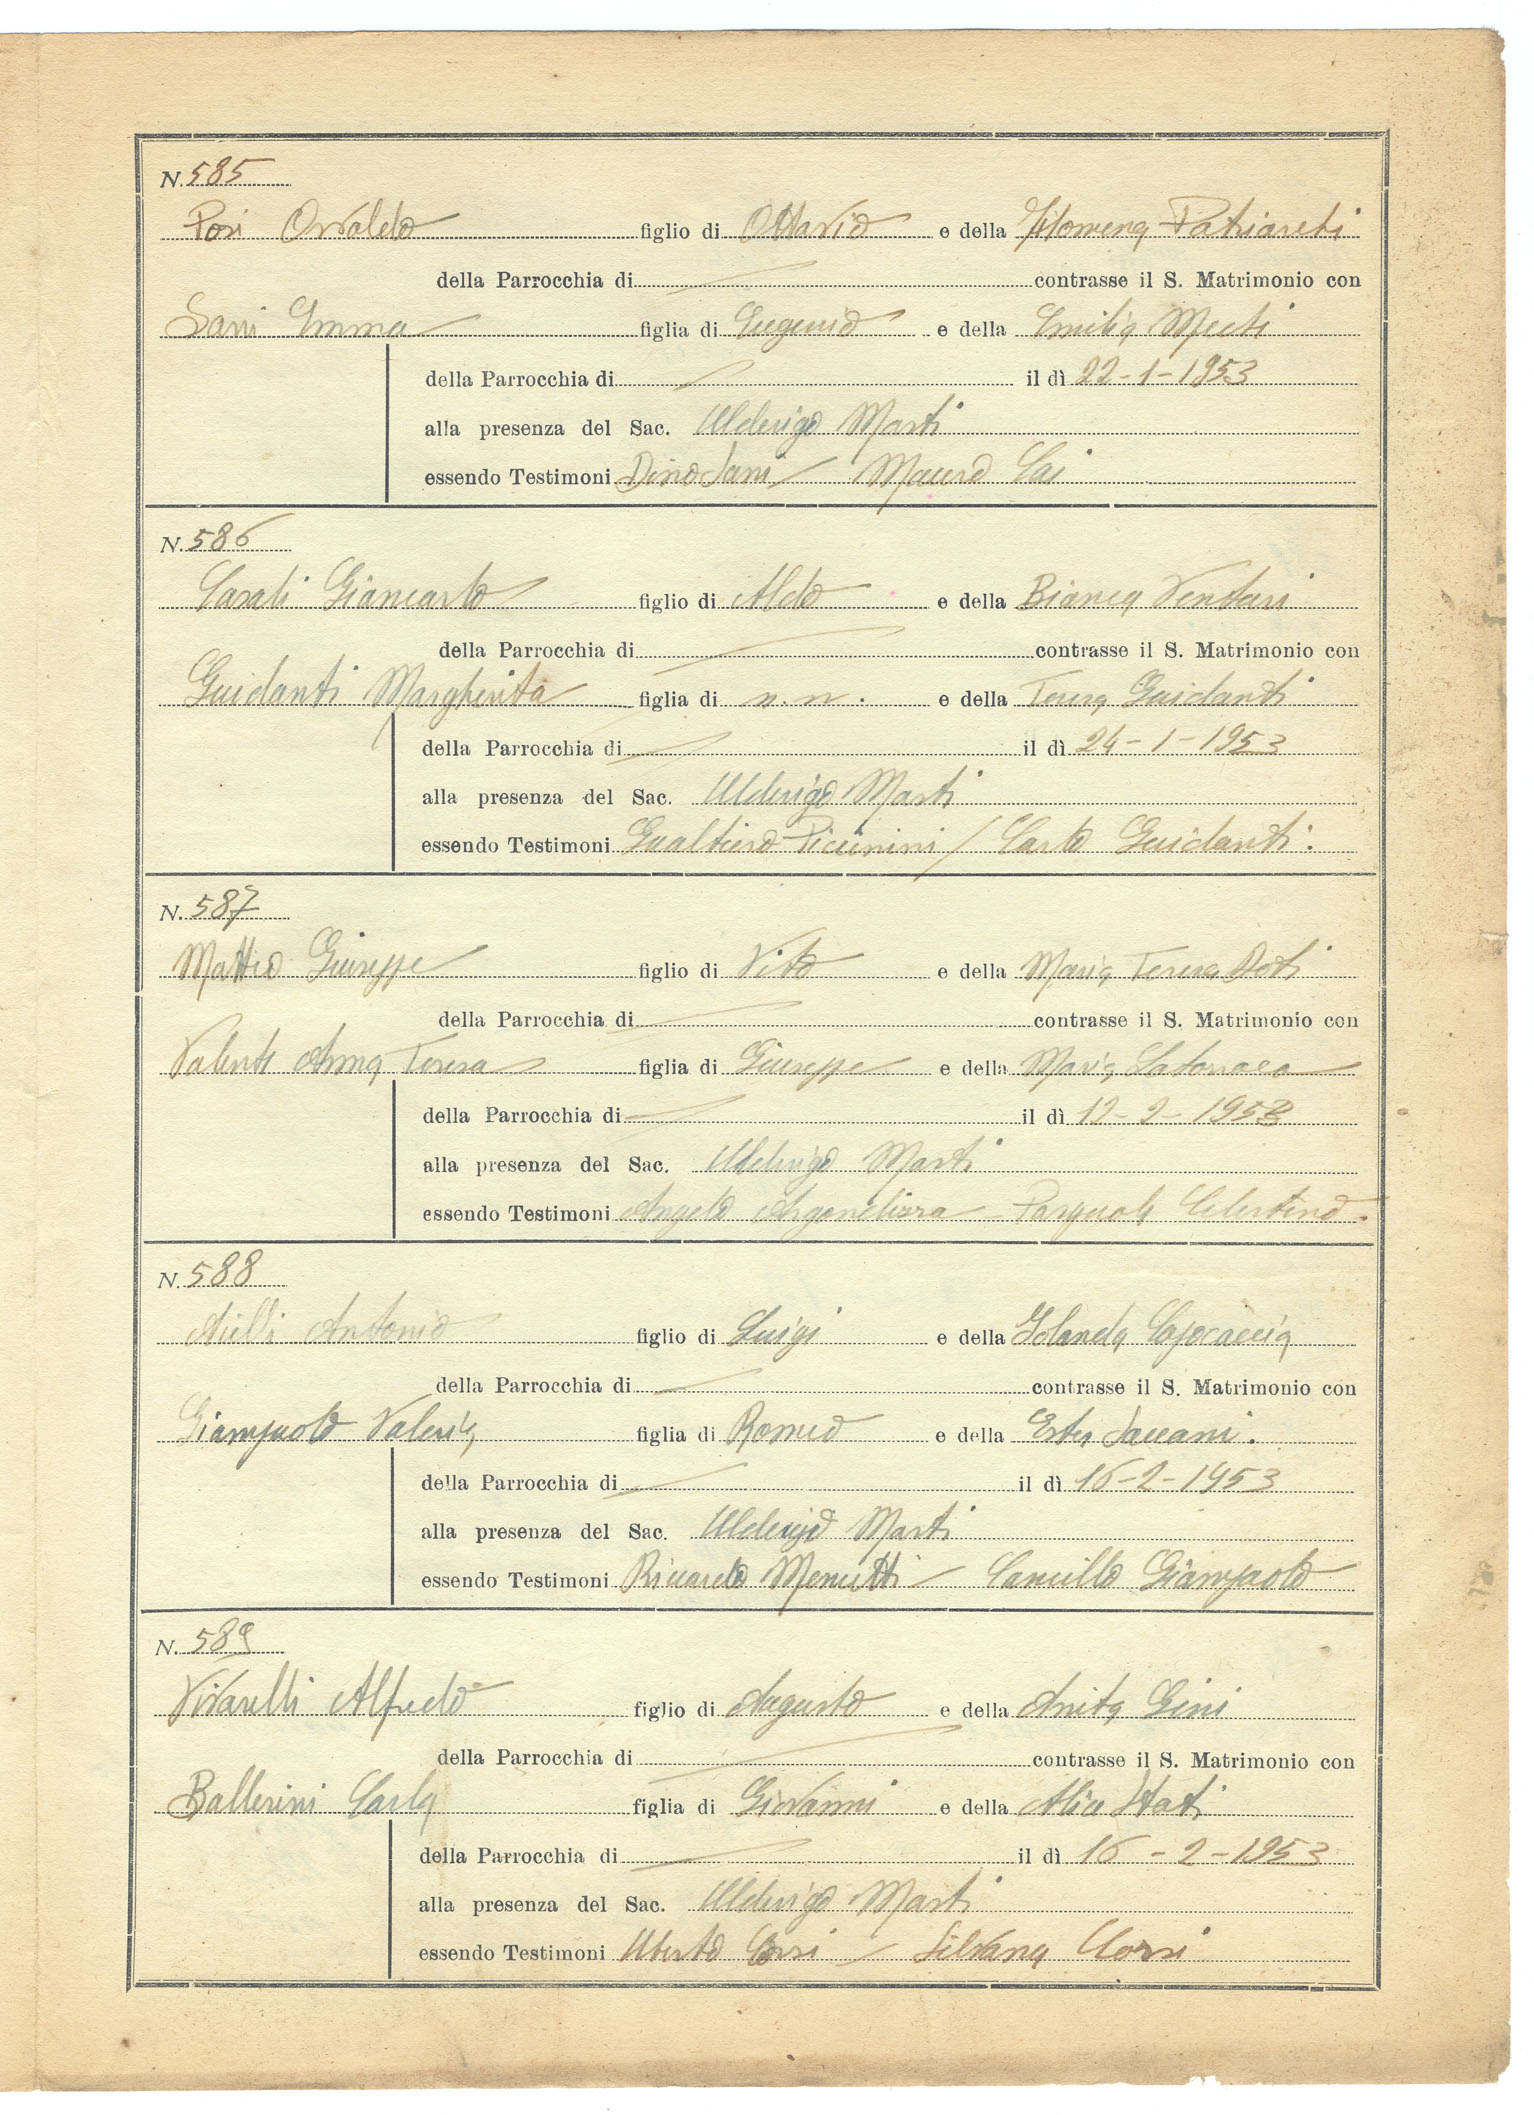 N. 585
Posi Osvaldo figlio di Ottavio e della Filomena Patriarchi
della Parrocchia di contrasse il S. Matrimonio con
Sani Emma figlia di Eugenio e della Emilia Mecti
della Parrocchia di il dì 22-1-1953
alla presenza del Sac. Ulderigo Marti
essendo Testimoni Dino Sani / Mauro Cai
N. 586
Casati Giancarlo figlio di Aldo e della Bianca Venturi
della Parrocchia di contrasse il S. Matrimonio con
Guidanti Margherita figlia di n. n. e della Teresa Guidanti
della Parrocchia di il dì 24-1-1953
alla presenza del Sac. Ulderigo Marti
essendo Testimoni Gualtiero Piccinini / Carlo Guidanti.
N. 587
Matteo Giuseppe figlio di Vito e della Maria Teresa
della Parrocchia di contrasse il S. Matrimonio con
Valenti Anna Teresa figlia di Giuseppe e della Maria Latorraca
della Parrocchia di il dì 12-2-1953
alla presenza del Sac. Ulderigo Marti
essendo Testimoni Angelo - Pasquale Celestino.
N. 588
Aielli Antonio figlio di Luigi e della Iolanda Capocaccia
della Parrocchia di contrasse il S. Matrimonio con
Giampaolo Valeria figlia di Romeo e della Ester Saccani.
della Parrocchia di il dì 16-2-1953
alla presenza del Sac. Ulderigo Marti
essendo Testimoni Riccardo Menutti / Camillo Giampaolo
N. 589
Vivarelli Alfredo figlio di Augusto e della Anita Gini
della Parrocchia di contrasse il S. Matrimonio con
Ballerini Carla figlia di Giovanni e della Alice Stati
della Parrocchia di il dì 16-2-1953
alla presenza del Sac. Ulderigo Marti
essendo Testimoni Uberto Corsi / Silvana Corsi